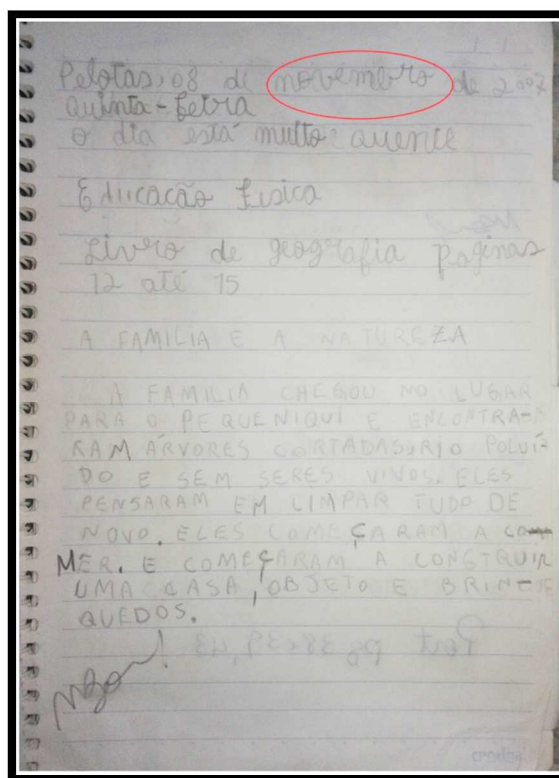 Pelotas, 08 de novembro de 2007
Quinta-feira
O dia está muito quente
Educação Física
Livro de geografia paginas
12 até 15
A FAMILIA E A NATUREZA
A FAMILIA CHEGOU NO LUGAR
PARA O PEQUENIQUI E ENCONTRA-
RAM ÁRVORES CORTADAS, RIO POLUI-
DO E SEM SERES VIVOS. ELES
PENSARAM EM LIMPAR TUDO DE
NOVO. ELES COMEÇARAM A CO
MER. E COMEÇARAM A CONSTRUIR
UMA CASA, OBJETO E BRINC
QUEDOS.
credeal